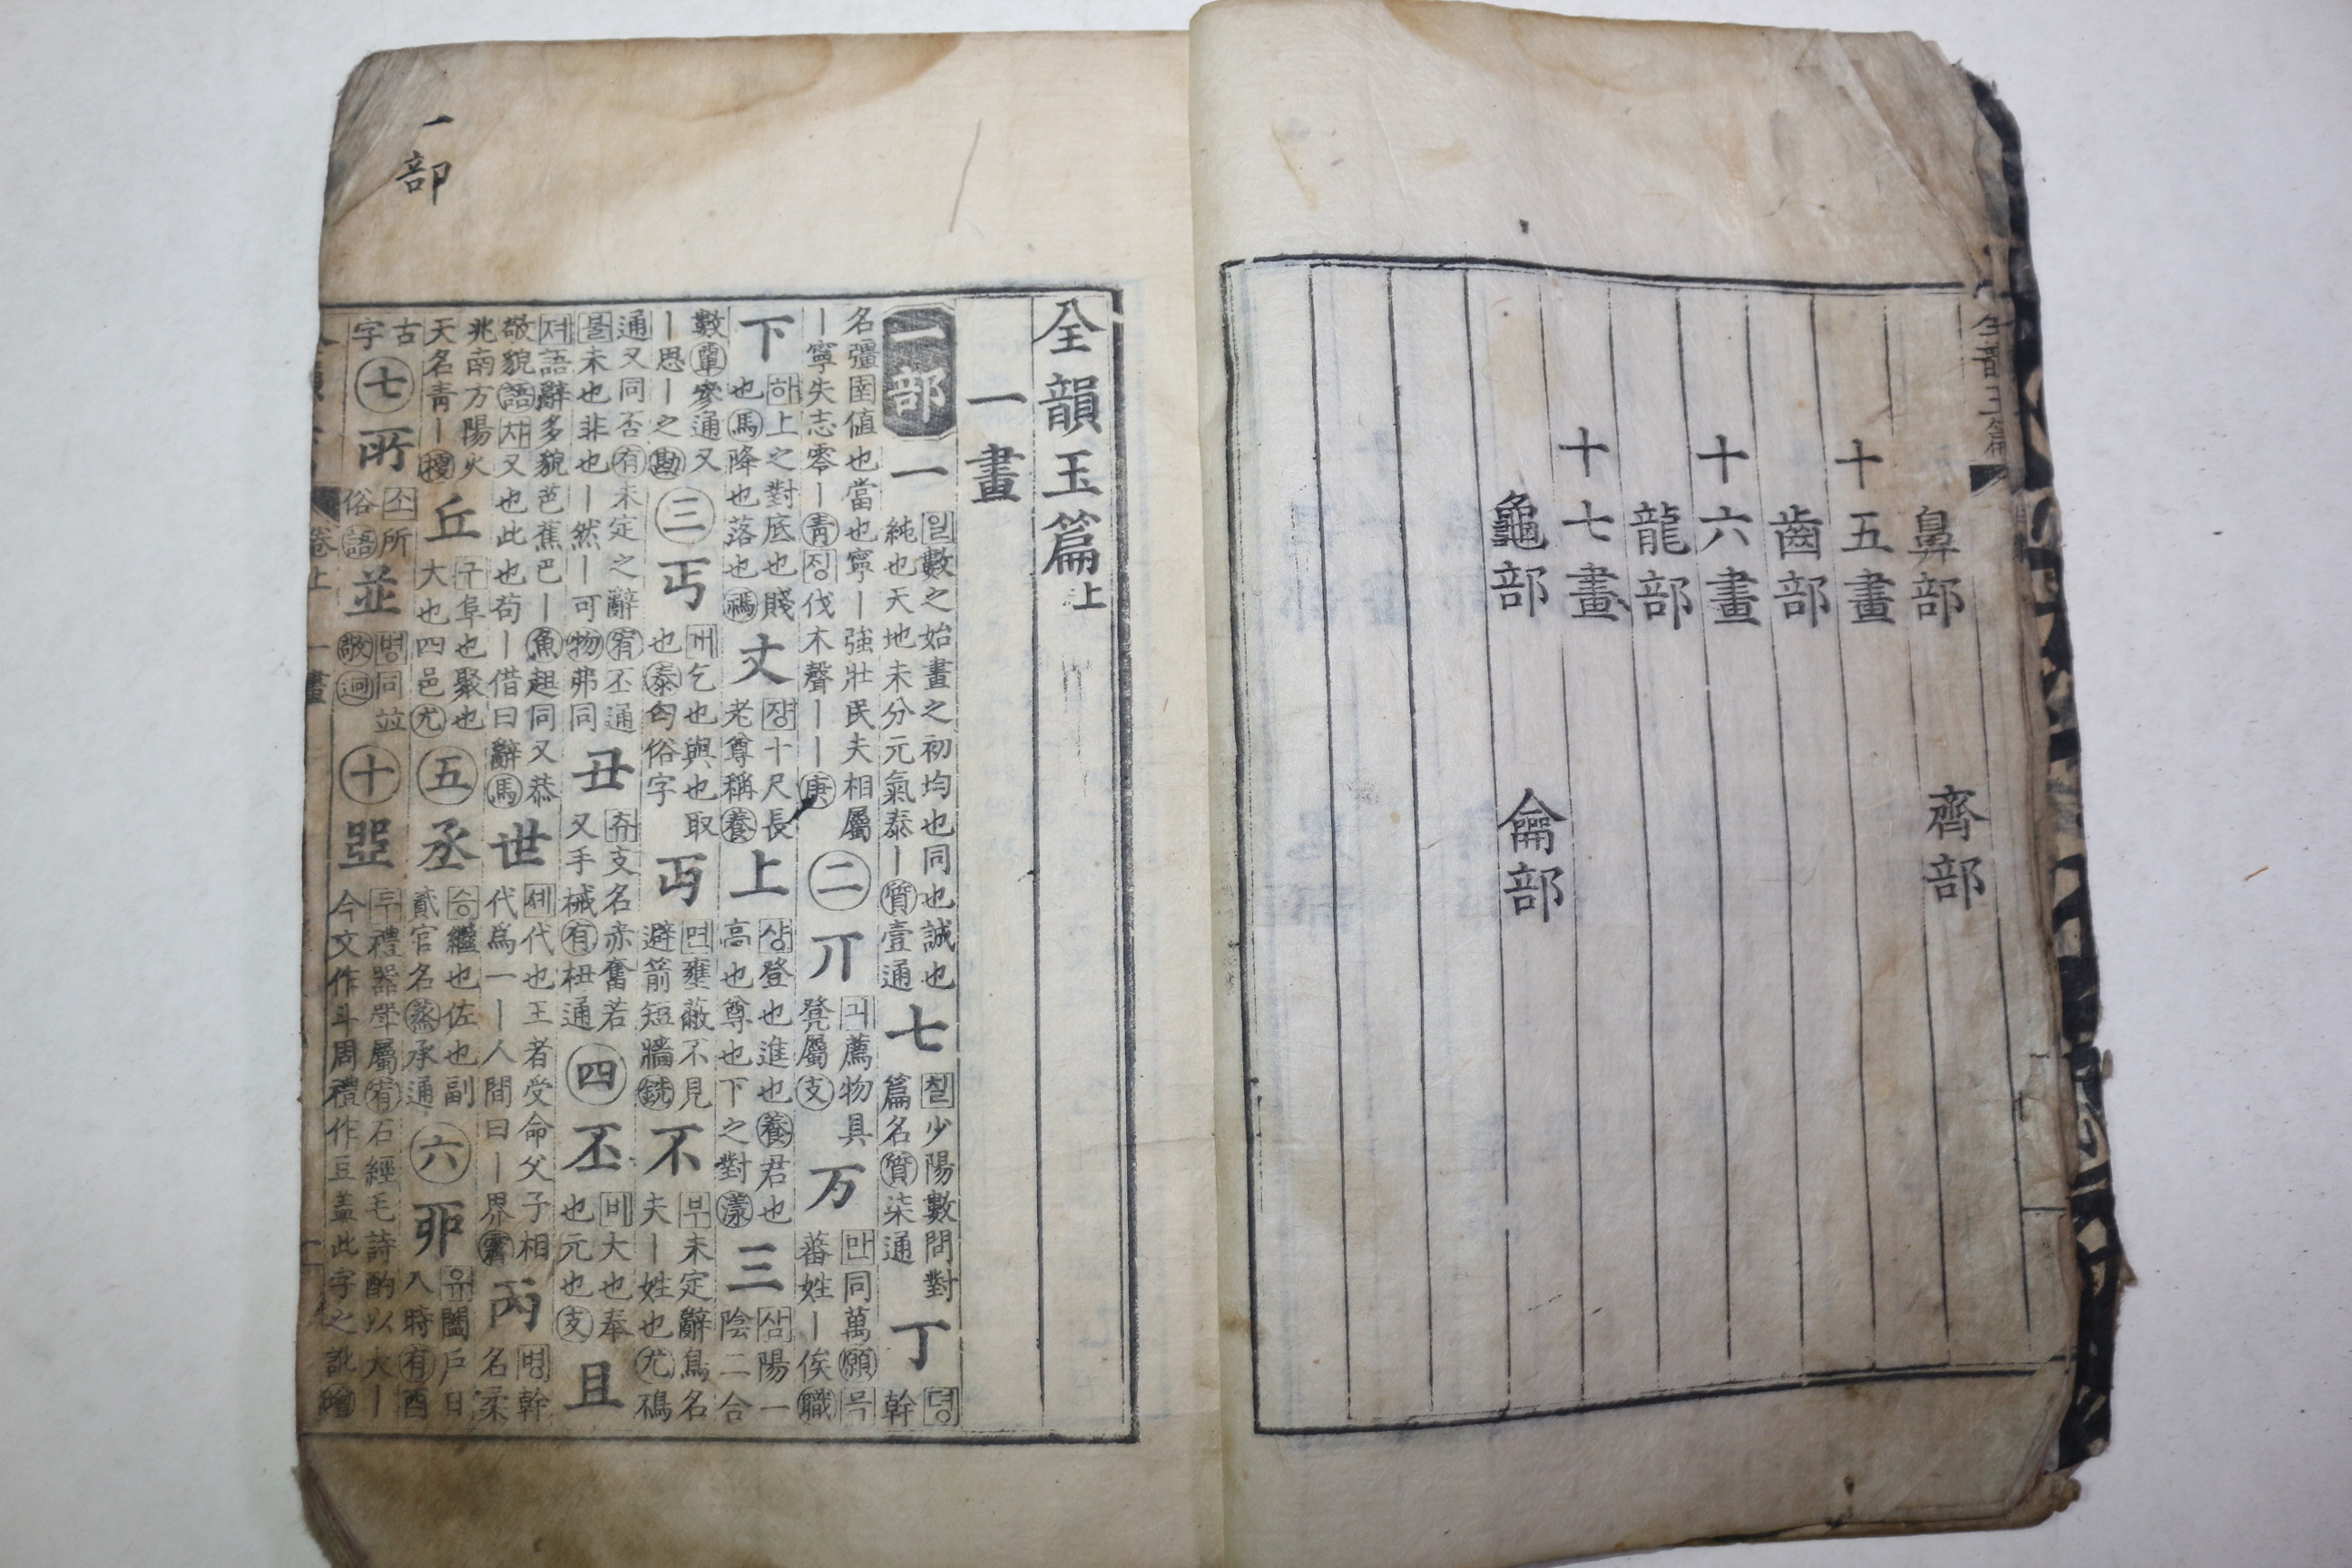 鼻部 齊部
十五畫
齒部
十六畫
龍部
十七畫
龜部 龠部
全韻玉篇上
一畫
一部 一 일數之始畫之初均也同也誠也純也天地未分元氣泰丨質壹通 七 칠少陽數問對篇名質柒通 丁 뎡幹
名彊圉值也當也寧丨強壯民夫相屬丨寧失志零丨青징伐木聲丨丨庚 二 丌 긔薦物具凳屬支 万 만同萬願믁蕃姓丨俟職
下 하上之對底也賤也馬降也落也禡 丈 쟝十尺長老尊稱養 上 샹登也進也養君也高也尊也下之對漾 三 삼陽一陰二合
數覃參通又丨思丨之勘 三 丐 개乞也與也取也泰匃俗字 丏 면壅蔽不見避箭短牆銑 不 부未定辭鳥名夫丨姓也尤鳺
通又同否有未定之辭宥丕通블未也非也丨然丨可物弗同 丑 츄支名赤奮若又手械有杻通 四 丕 비大也奉也元也支 且
져語辭多貌芭蕉巴丨魚趄同又恭敬貌語챠又也此也苟丨借曰辭馬 世 셰代也王者受命父子相代爲一丨人間曰丨界霽 丙 병幹名柔
兆南方陽火天名青丨梗 丘 구阜也聚也大也四邑尤 五 丞 승繼也佐也副貳官名蒸承通 六 丣 유闔戶日入時有酉
古字 七 所 소所俗語 並 병同竝敬迥 十 두禮器斝屬宥石經毛詩酌以大丨今文作斗周禮作豆盖此字之訛
卷上 一畫
一部